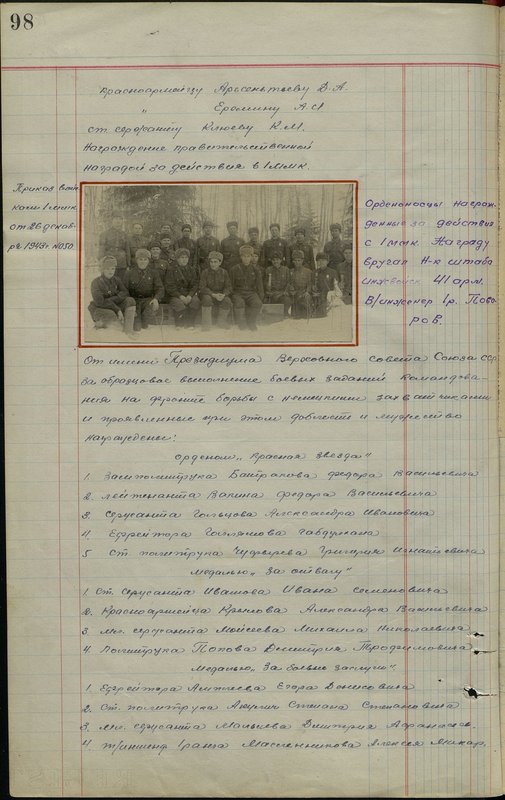 98
Красноармейцу Арсентьеву Д.А.
" Еромину А.И
Ст. сержанту Клюеву К.М.
Награждение правительственной
наградой за действия в 1 ммк.
Приказ
кам 1 ммк
от 26 декаб-
ря 1942г №050.
Орденоносцы награж-
денные за действия
с 1 мак. Награду
вручал Н-к штаба
инжвойск 41 арм.
В/инженер 1р.
От имени Президиума Верховного Совета Союза ССР
за образцовое выполнение боевых заданий командова-
ния на фронте борьбы с немецкими захватчиками
и проявленные при этом доблесть и мужество
награждены:
орденом „Красная звезда"
1. Замполитрука Батракова Федора Васильевича
2. лейтенанта Вагина Федора Васильевича
3. Сержанта Гольцова Александра Ивановича
4. Ефрейтора
5 Ст. политрука Григория Игнатьевича
медалью „За отвагу"
1. Ст. Сержанта Ивашова Ивана Семеновича
2. Красноармейца Крылова Александра Васильевича
3. Мл. сержанта Моисеева Михаила Николаевича
4. Политрука Попова Дмитрия Трофимовича
медалью „За боевые заслуги".
1. Ефрейтора Егора Денисовича
2. Ст. политрука Степана Степановича
3. Мл. сержанта Малыгова Дмитрия
4. Т/инженер 1 ранга Масленникова Алексея Макар.